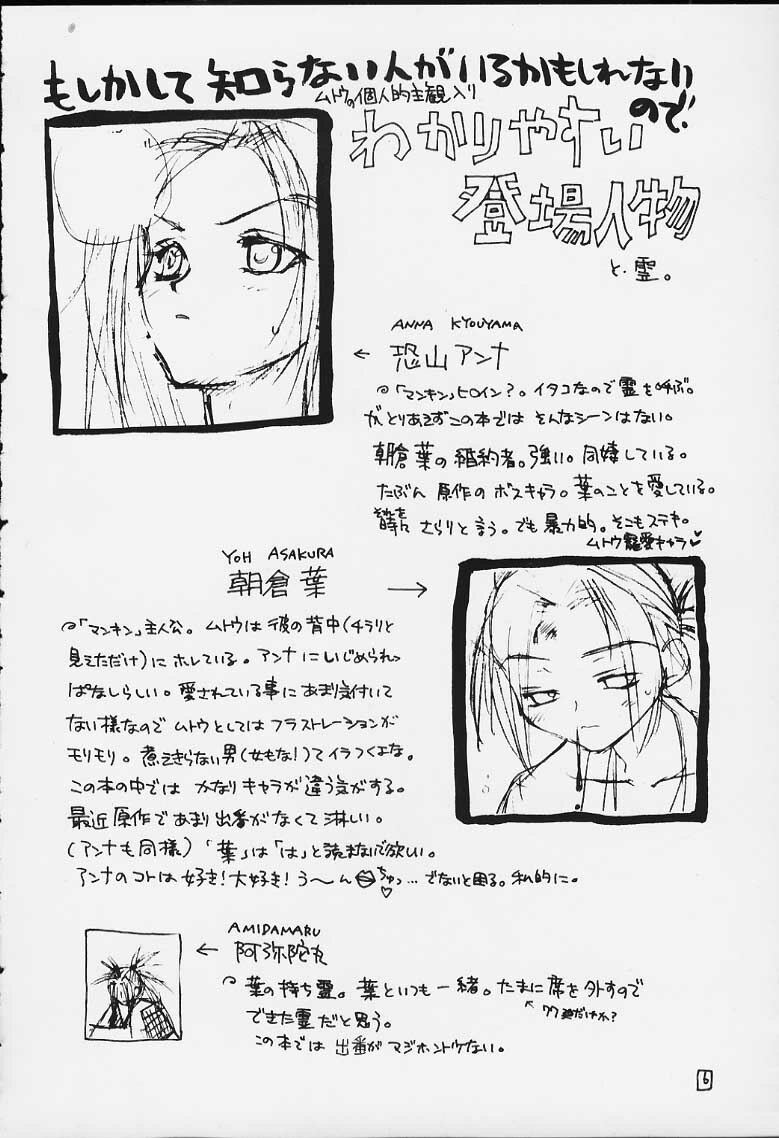 もしかして知らない人がいるかもしれない
ので
ムトウの個人的主観入り
わかりやすい
登場人物
と・霊。
ANNA KYOUYAMA
← 恐山アンナ
「マンキン」ヒロイン？。イタコなので霊を呼ぶ。
がとりあえずこの本ではそんなシーンはない。
朝倉葉の婚約者。強い。同棲している。
たぶん原作のボスキャラ。葉のことを愛している。
それを時にさらりと言う。でも暴力的。そこもステキ。
ムトウ寵愛キャラ♥
YOH ASAKURA
朝倉葉 →
「マンキン」主人公。ムトウは彼の背中(チラリと
見えただけ)にホレている。アンナにいじめられっ
ぱなしらしい。愛されている事にあまり気付いて
ない様なのでムトウとしてはフラストレーションが
モリモリ。煮えきらない男(女もな!)てイラつくよな。
この本の中ではかなりキャラが違う気がする。
最近原作であまり出番がなくて淋しい。
(アンナも同様)「葉」は「は」と読まないで欲しい。
アンナのコトは好き!大好き!う〜んちゅっ♡…でないと困る。私的に。
AMIDAMARU
← 阿弥陀丸
葉の持ち霊。葉といつも一緒。たまに席を外すので
できた霊だと思う。
この本では出番がマジホントウない。
6